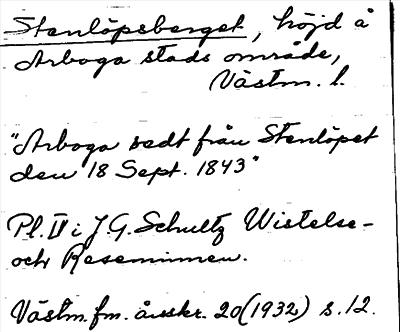 Stenlöpsberget, höjd å
Arboga stads område,
Västm. l.
"Arboga sedt från Stenlöpet
den 18 Sept. 1843"
Pl. IV i J. G. Schultz Wistelse-
och Reseminnen.
Västm. fm. årsskr. 20 (1932) s. 12.